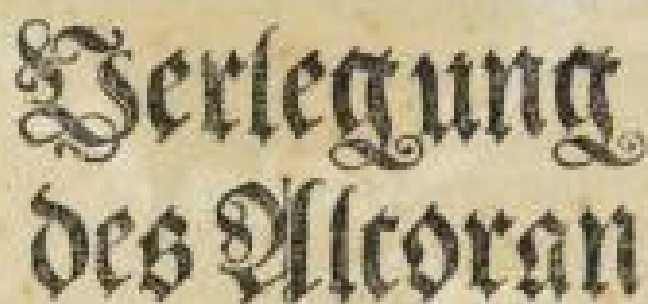 Verlegung
des Alcoran